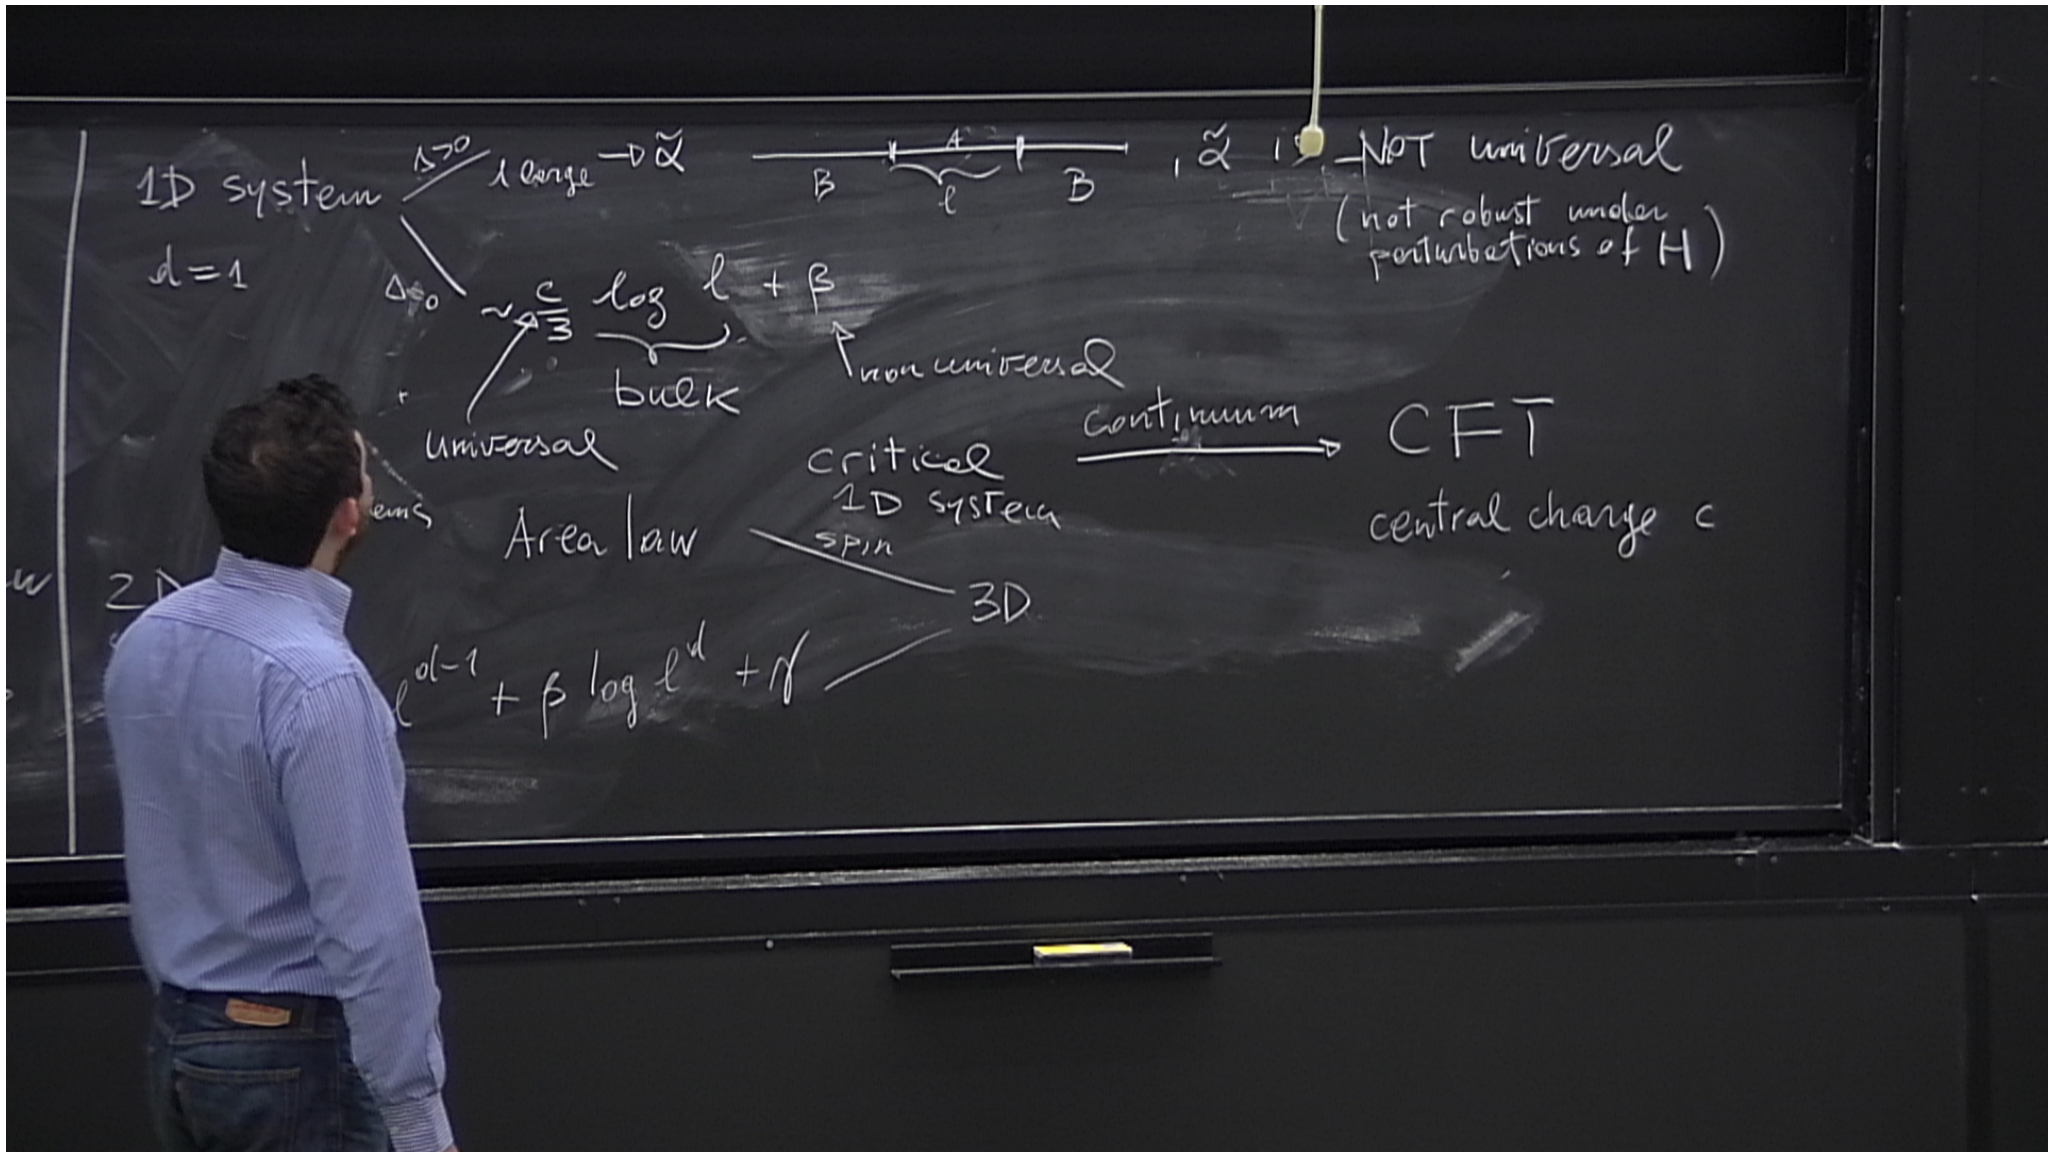 1D system
Δ>0
l large → α̃
A
B
l
B
, α̃ is NOT universal
(not robust under
perturbations of H)
d=1
Δ=0
~ c/3 log l + β
bulk
non universal
universal
critical
1D system
spin
continuum
CFT
central charge c
ems
Area law
3D
2D
w
l^{d-1} + β log l^d + γ